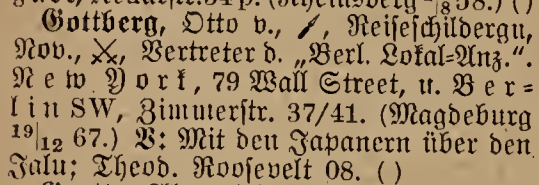 Gottberg, Otto v., Reiseschildergn,
Nov., Vertreter d. „Berl. Lokal-Anz.“.
New York, 79 Wall Street, u. Ber=
lin SW, Zimmerstr. 37/41. (Magdeburg
19|12 67.) V: Mit den Japanern über den
Jalu; Theod. Roosevelt 08. ( )